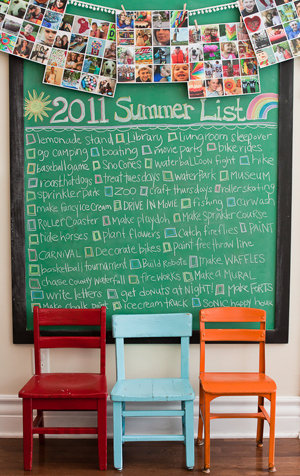 2011 Summer List
lemonade stand Library livingroom sleepover
go camping boating movie party bike rides
baseball game Sno Cones waterballoon fight hike
roast hotdogs treat tuesdays water Park Museum
sprinkler Park Zoo craft thursdays rollerskating
make fancy Ice Cream DRIVE IN MOVIE fishing carwash
Roller Coaster Make playdoh Make Sprinkler Course
ride horses plant flowers Catch fireflies PAINT
CARNIVAL Decorate bikes paint free throw line
basketball tournament Build Robots make WAFFLES
chase County waterfall fireworks Make a MURAL
write letters get donuts at Night! FORTS
Make Chalk icecream truck SONIC happy hour